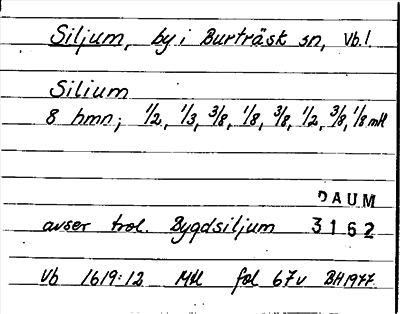 Siljum, by i Burträsk sn, Vb.l.
Silium
8 hmn; 1/2, 1/3, 3/8, 1/8, 3/8, 1/2, 3/8, 1/8 mtl
DAUM
avser trol. Bygdsiljum 3162
Vb 1619:12 Mtl fol 67v BH1977